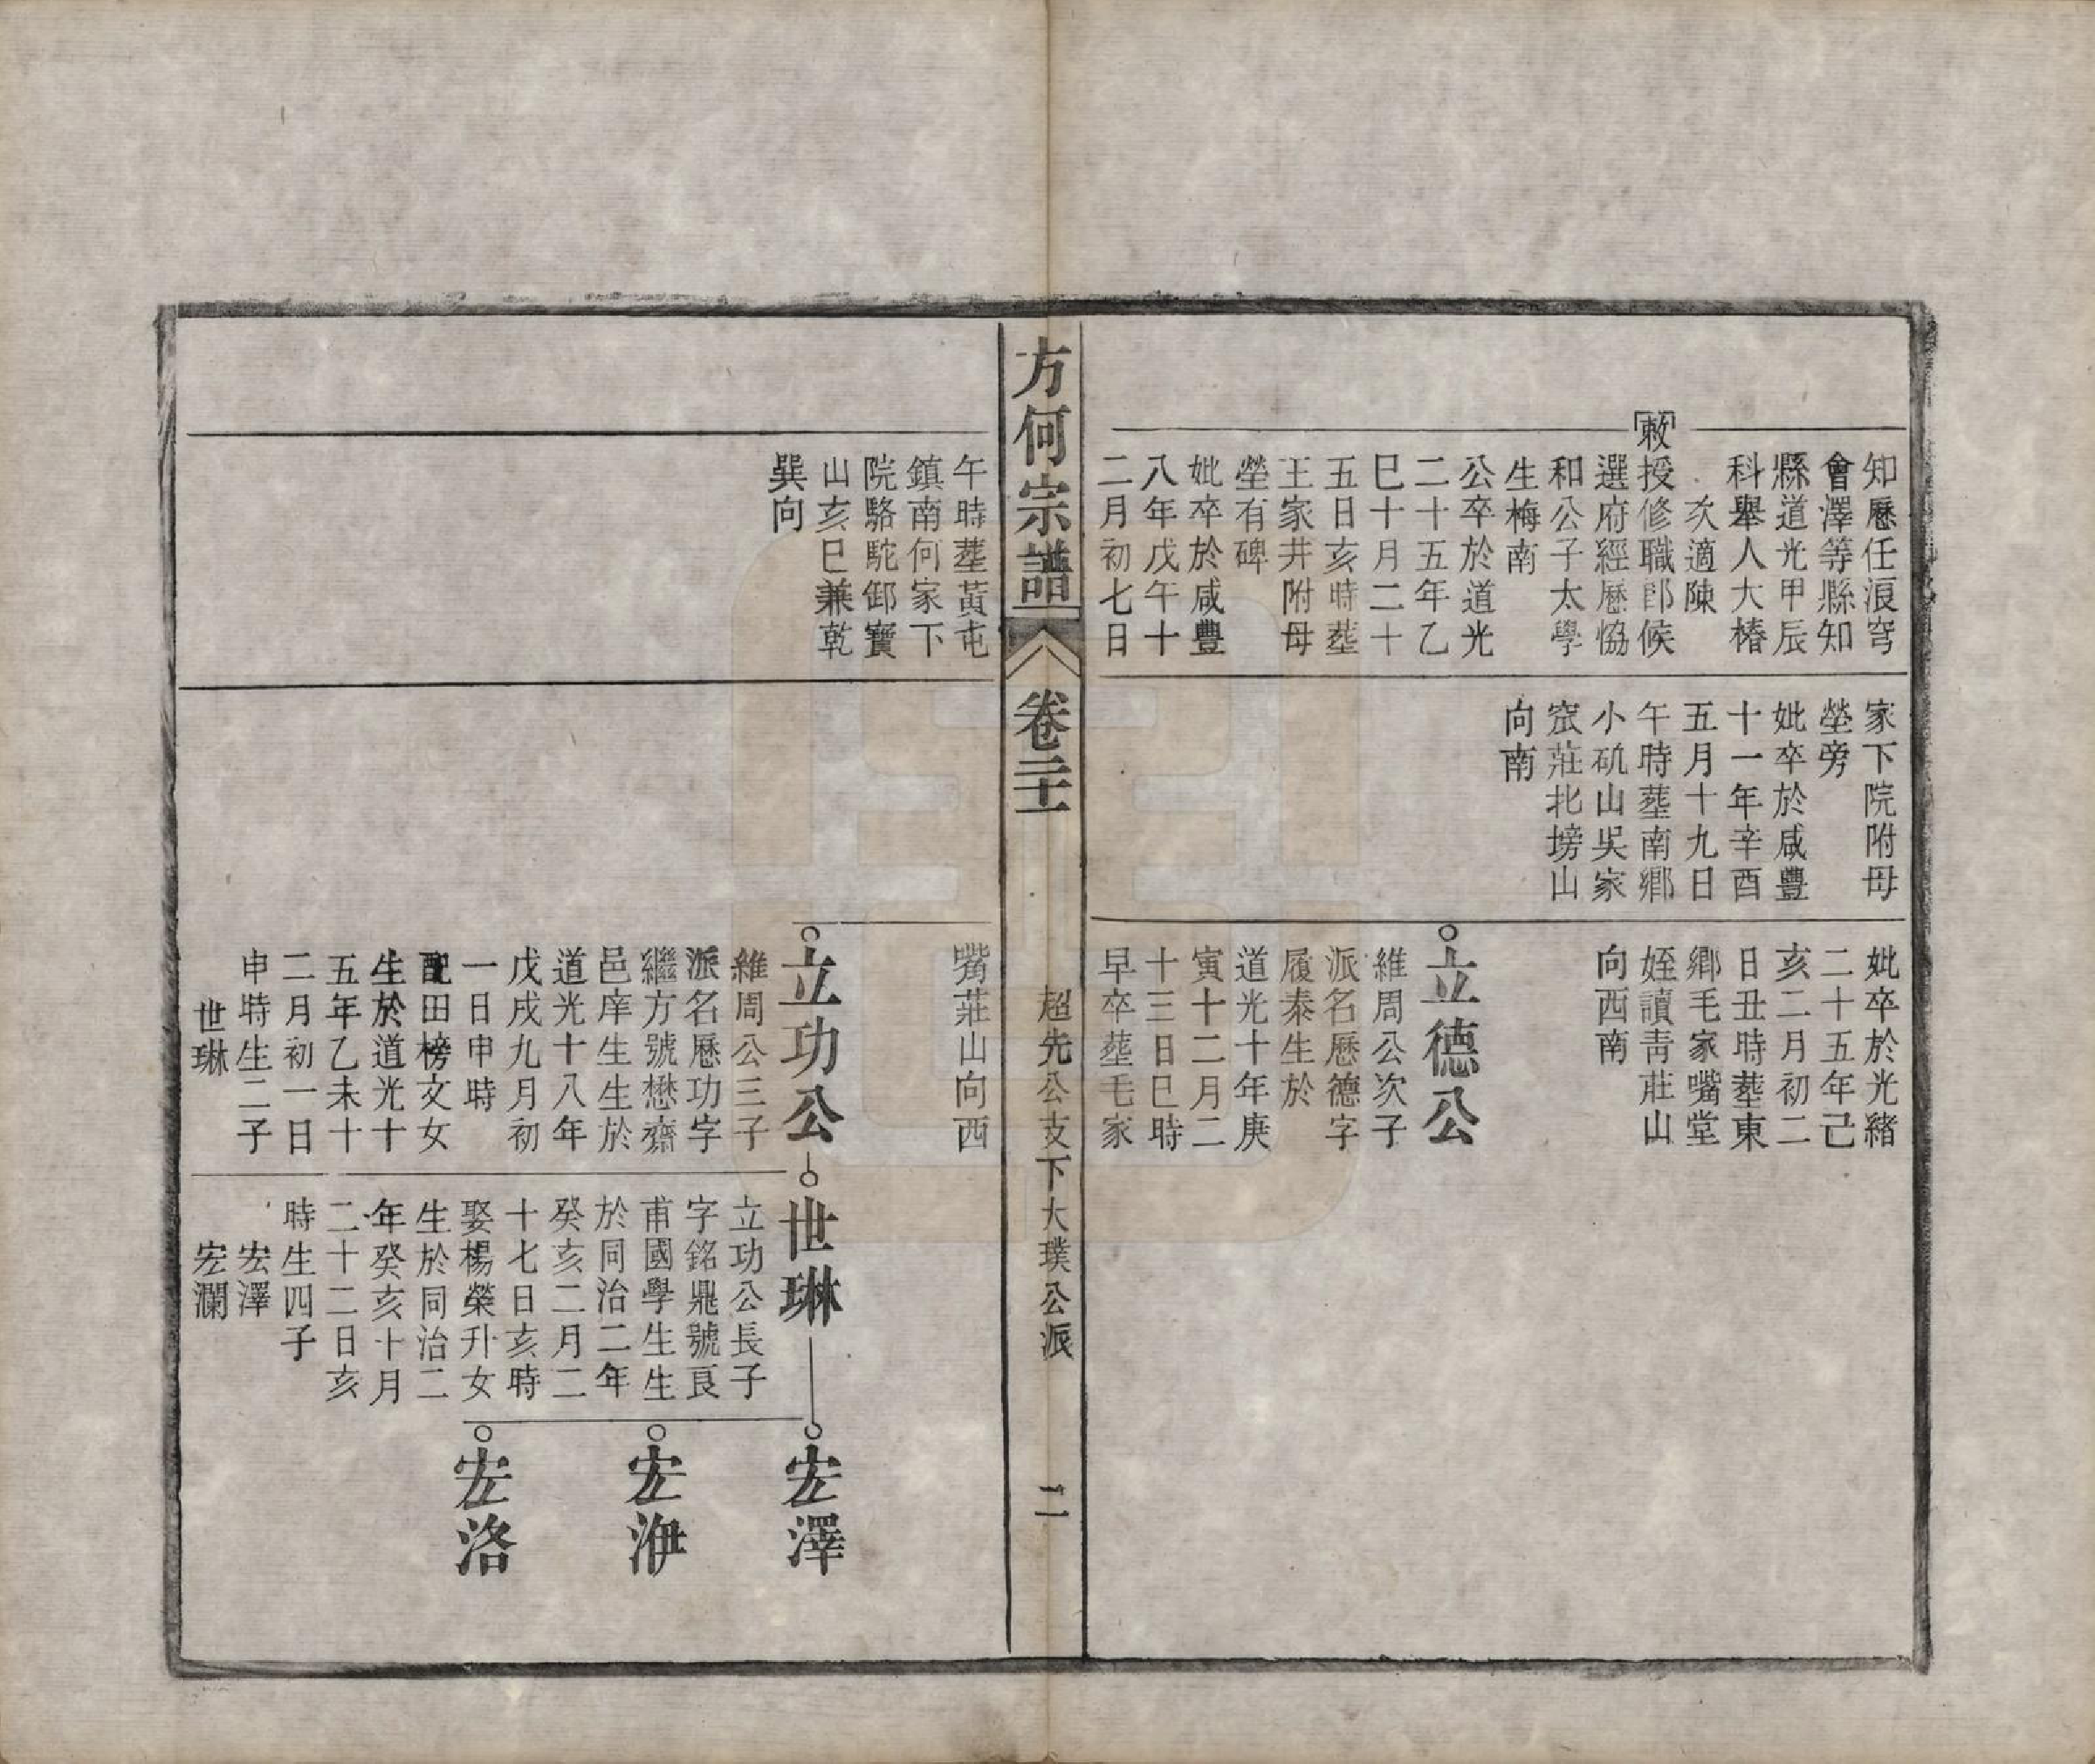 知歷任浪穹
會澤等縣知
縣道光甲辰
科舉人大椿
次適陳
敕授修職郎候
選府經歷恊
和公子太學
生梅南
公卒於道光
二十五年乙
巳十月二十
五日亥時塟
王家井附母
塋有碑
妣卒於咸豐
八年戊午十
二月初七日
家下院附母
塋旁
妣卒於咸豐
十一年辛酉
五月十九日
午時塟南鄉
小矶山吳家
窊莊北塝山
向南
妣卒於光緒
二十五年己
亥二月初二
日丑時塟東
鄉毛家嘴堂
姪讀青莊山
向西南
立德公
維周公次子
派名歷德字
履泰生於
道光十年庚
寅十二月二
十三日巳時
早卒塟毛家
方何宗譜
卷二十一
超先公支下大璞公派
二
午時塟黃屯
鎮南何家下
院駱駝卸寶
山亥巳兼乾
巽向
嘴莊山向西
立功公
維周公三子
派名歷功字
繼方號懋齋
邑庠生生於
道光十八年
戊戌九月初
一日申時
配田榜文女
生於道光十
五年乙未十
二月初一日
申時生二子
世琳
世琳
立功公長子
字銘鼎號良
甫國學生生
於同治二年
癸亥二月二
十七日亥時
娶楊榮升女
生於同治二
年癸亥十月
二十二日亥
時生四子
宏澤
宏瀾
宏澤
宏洢
宏洛